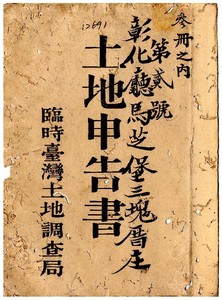 12691
參冊之內
第貳號
彰化廳馬芝堡三塊厝庄
土地申告書
臨時臺灣土地調查局